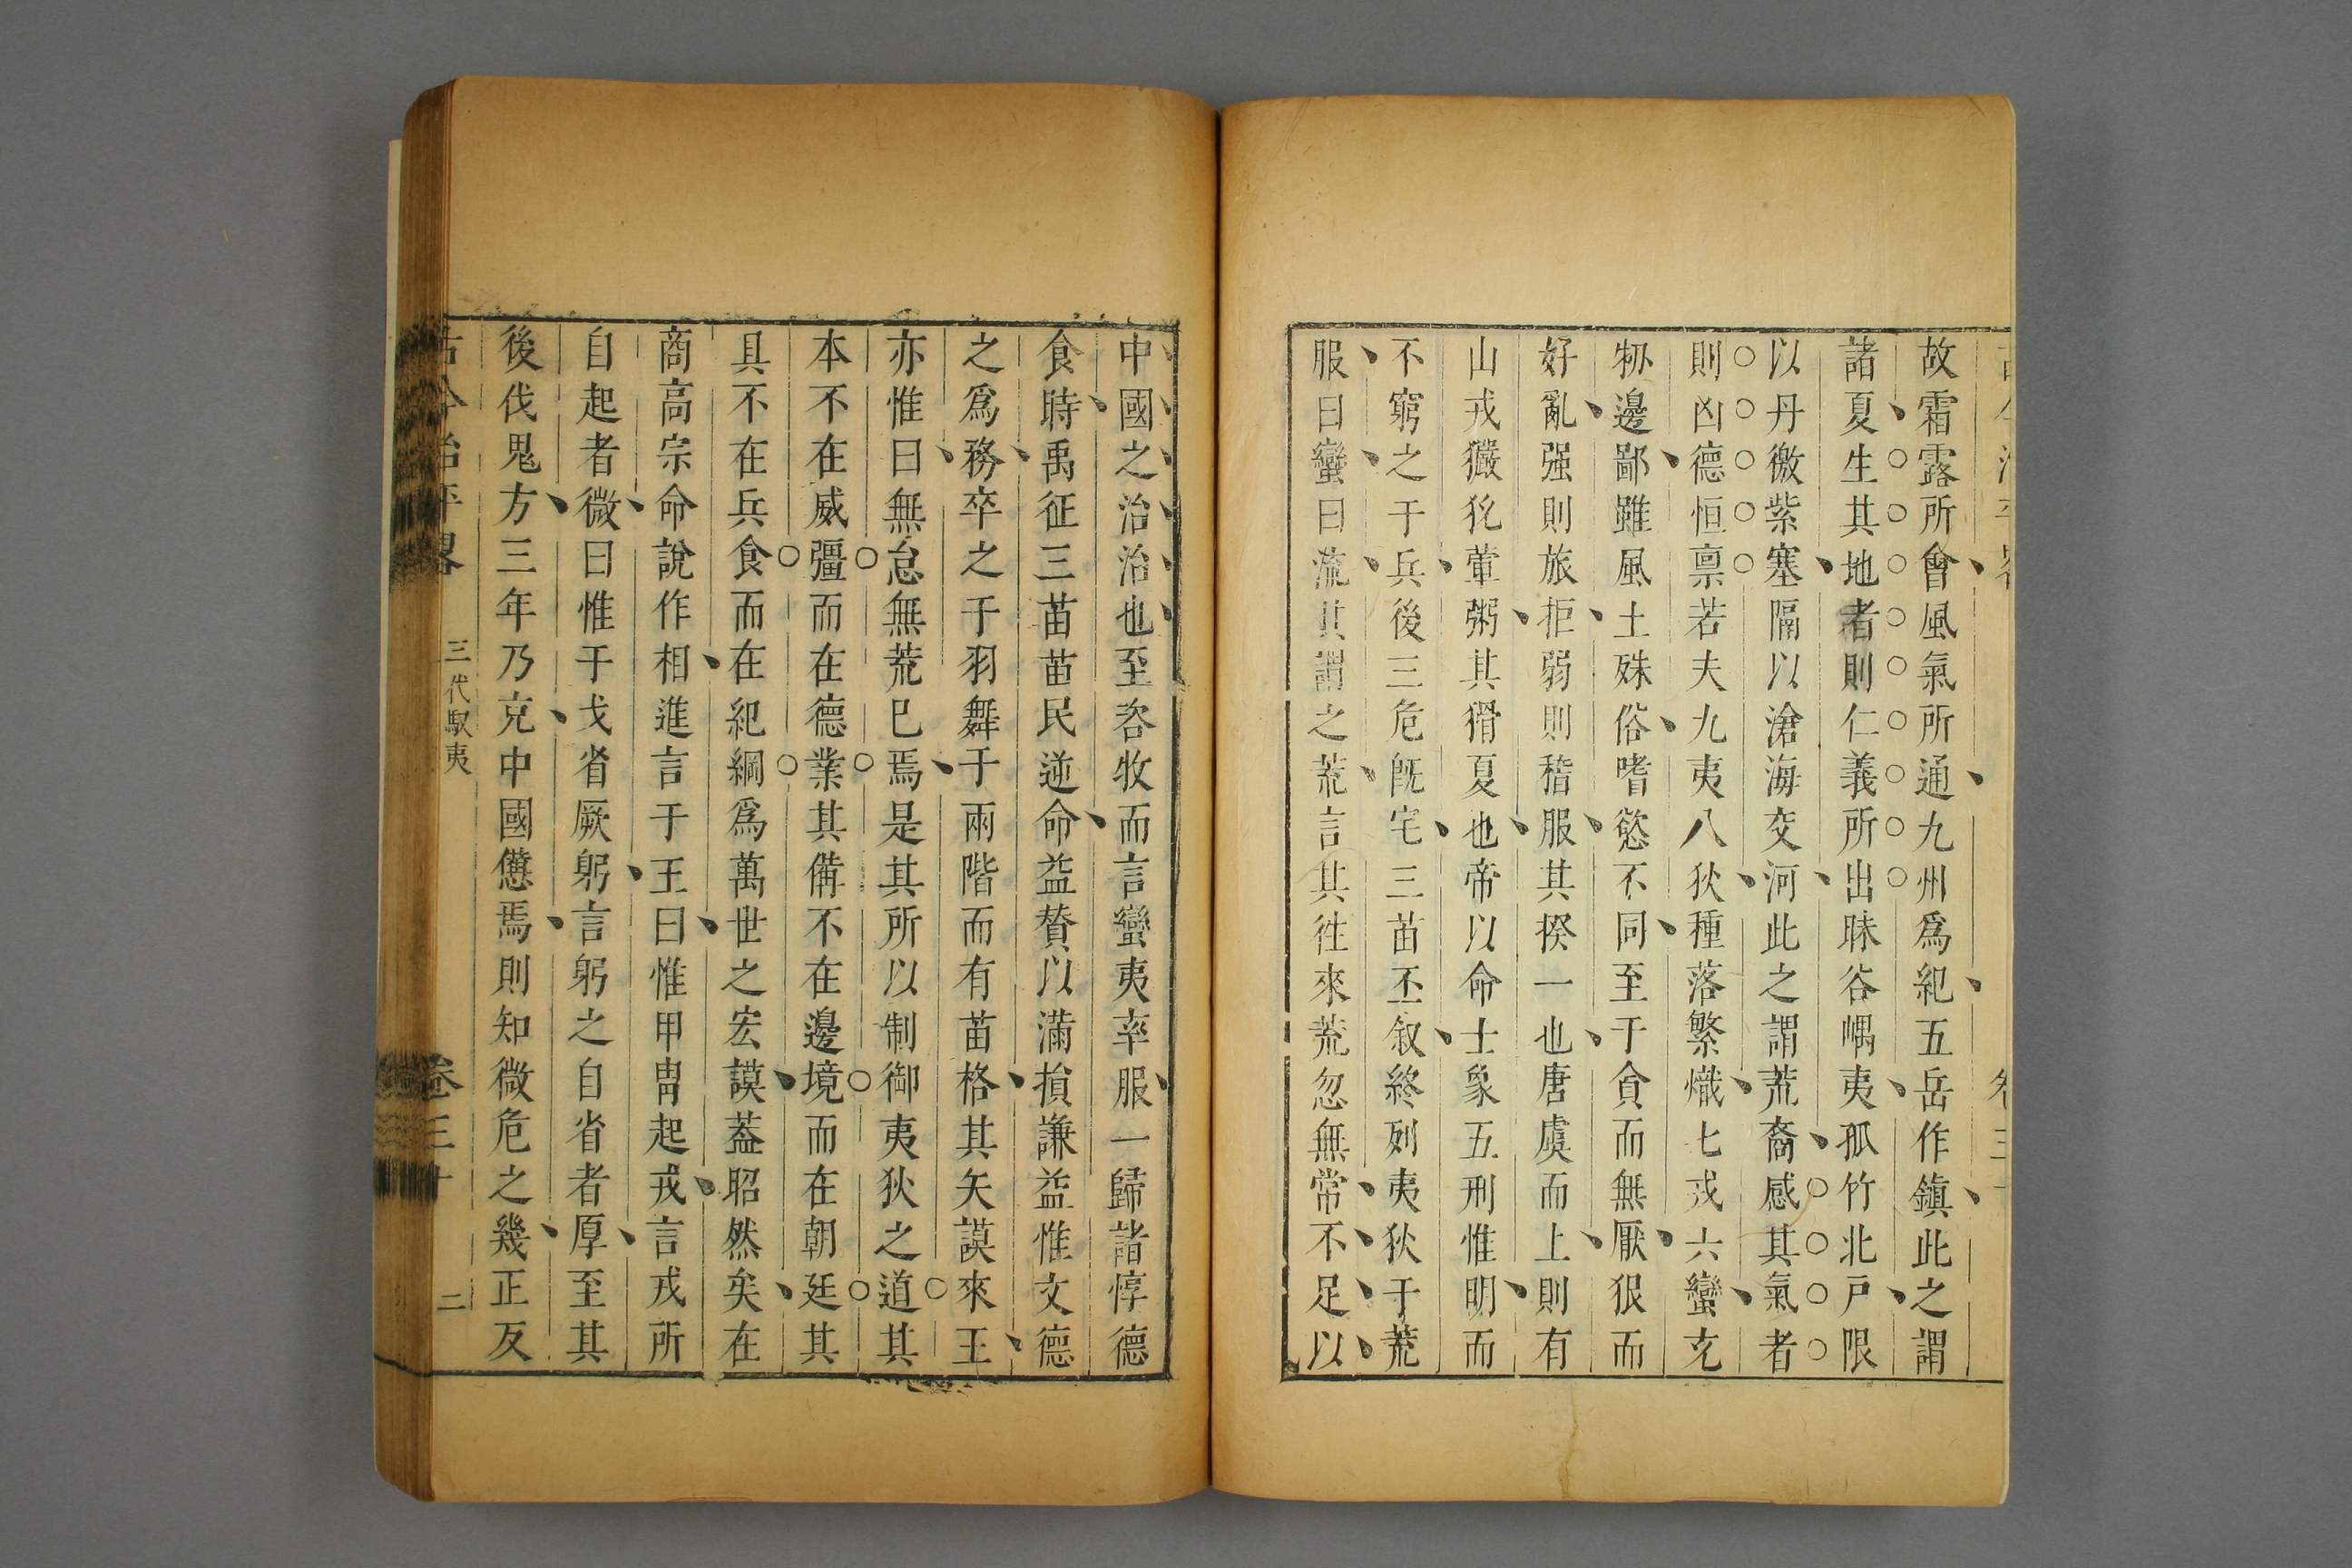 故霜露所會風氣所通九州爲紀五岳作鎮此之謂
諸夏生其地者則仁義所出昧谷嵎夷孤竹北戸限
以丹徼紫塞隔以滄海交河此之謂荒裔感其氣者
則凶德恒禀若夫九夷八狄種落繁熾七戎六蠻充
牣邊鄙雖風土殊俗嗜慾不同至于貪而無厭狠而
好亂强則旅拒弱則稽服其揆一也唐虞而上則有
山戎獫狁葷粥其猾夏也帝以命士象五刑惟明而
不窮之于兵後三危既宅三苗丕叙終列夷狄于荒
服曰蠻曰流其謂之荒言其徃來荒忽無常不足以
中國之治治也至咨牧而言蠻夷率服一歸諸惇德
食時禹征三苗苗民逆命益賛以滿損謙益惟文德
之爲務卒之于羽舞于兩階而有苗格其矢謨來王
亦惟曰無怠無荒巳焉是其所以制御夷狄之道其
本不在威彊而在德業其備不在邊境而在朝廷其
具不在兵食而在紀綱爲萬世之宏謨葢昭然矣在
商高宗命說作相進言于王曰惟甲冑起戎言戎所
自起者微曰惟干戈省厥躬言躬之自省者厚至其
後伐鬼方三年乃克中國憊焉則知微危之幾正反
古今治平畧 三代馭夷 卷三十 二